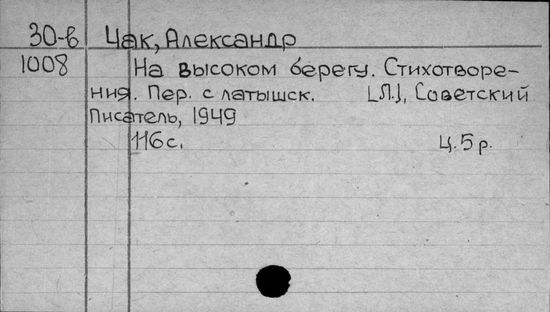 30-в Чак, Александр
1008 На высоком берегу. Стихотворе-
ния. Пер. с латышск. [Л.], Советский
Писатель, 1949
116 с. Ц. 5 р.